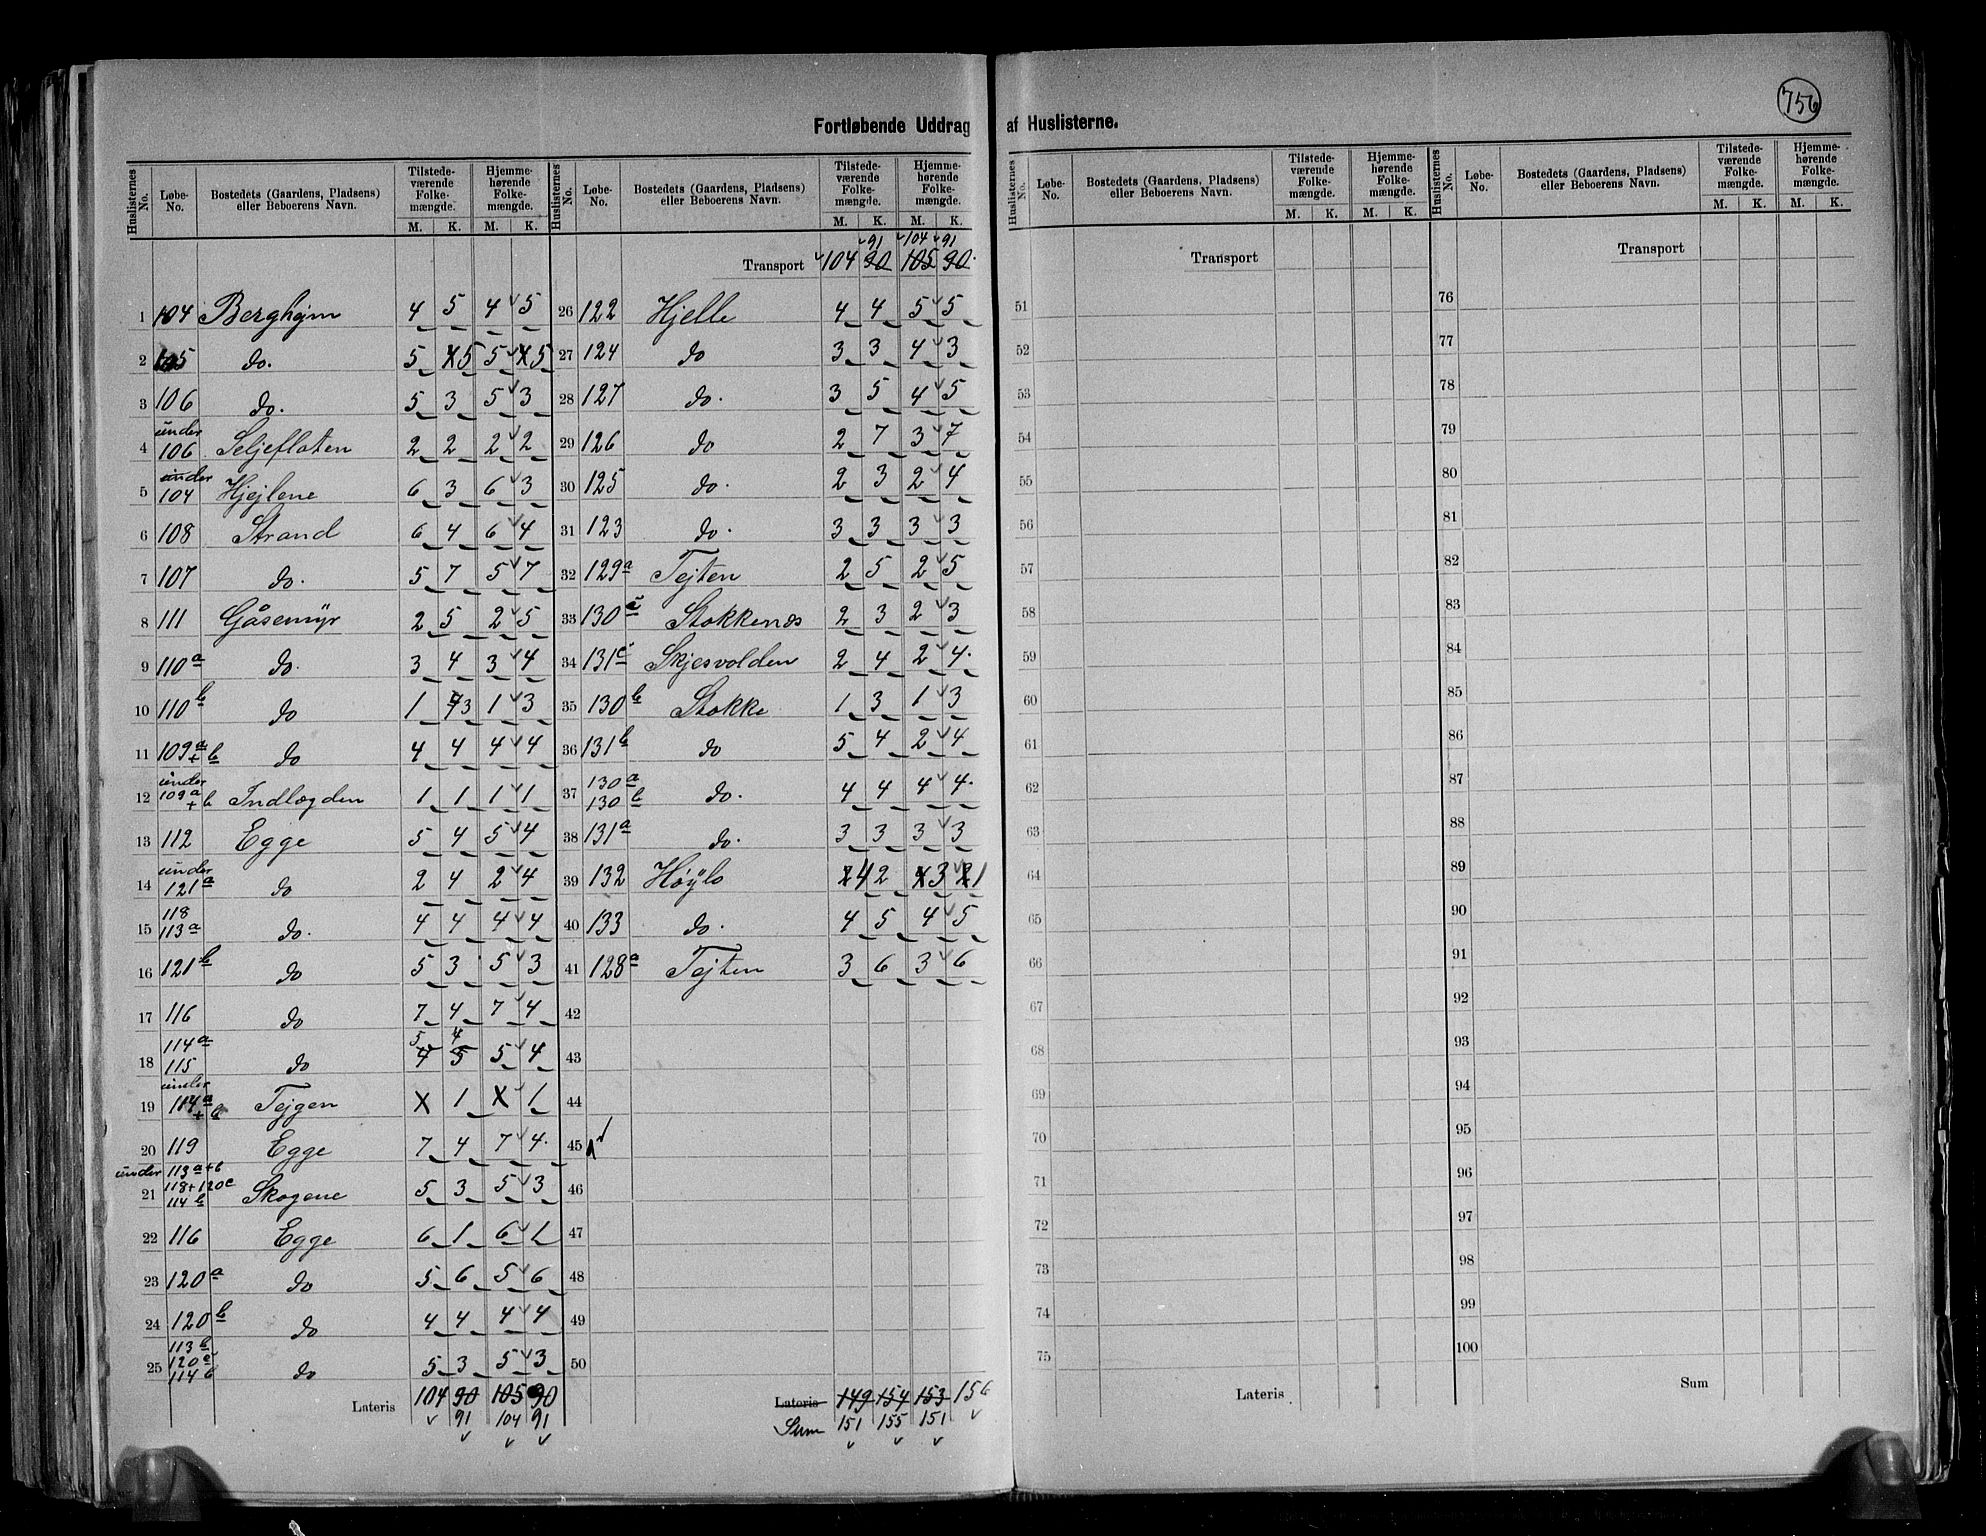 756
Fortløbende Uddrag af Huslisterne.
Huslisternes No. Løbe-No. Bostedets (Gaardens, Pladsens) eller Beboerens Navn. Tilstedeværende Folkemængde. M. K. Hjemmehørende Folkemængde. M. K.
1 104 Berghejm 4 5 4 5
2 105 do. 5 5 5 5
3 106 do. 5 3 5 3
4 under 106 Seljefloten 2 2 2 2
5 under 104 Hjejlene 6 3 6 3
6 108 Strand 6 4 6 4
7 107 do. 5 7 5 7
8 111 Gåsemyr 2 5 2 5
9 110a do. 3 4 3 4
10 110b do 1 3 1 3
11 109a+b do 4 4 4 4
12 under 109a+b Indlægden 1 1 1 1
13 112 Egge 5 4 5 4
14 under 121a do 2 4 2 4
15 118 113a do. 4 4 4 4
16 121b do 5 3 5 3
17 116 do 7 4 7 4
18 114a 115 do 5 4 4 5 5 4
19 under 114a Tejgen X 1 X 1
20 119 Egge 7 4 7 4
21 under 113a+b 118+120c 114b Skogene 5 3 5 3
22 116 Egge 6 1 6 1
23 120a do 5 6 5 6
24 120b do 4 4 4 4
25 113b 120c 114b do 5 3 5 3
Lateris 104 90 105 90
91 104 91
Huslisternes No. Løbe-No. Bostedets (Gaardens, Pladsens) eller Beboerens Navn. Tilstedeværende Folkemængde. M. K. Hjemmehørende Folkemængde. M. K.
91 104 91
Transport 104 90 105 90
26 122 Hjelle 4 4 5 5
27 124 do 3 3 4 3
28 127 do. 3 5 4 5
29 126 do 2 7 3 7
30 125 do. 2 3 2 4
31 123 do. 3 3 3 3
32 129a Tejten 2 5 2 5
33 130c Stokkenes 2 3 2 3
34 131c Skjesvolden 2 4 2 4
35 130b Stokke 1 3 1 3
36 131b do 5 4 2 4
37 130a 130b do. 4 4 4 4
38 131a do. 3 3 3 3
39 132 Høylo 4 2 3 1
40 133 do. 4 5 4 5
41 128a Tejten 3 6 3 6
42
43
44
45
46
47
48
49
50
Lateris 149 154 153 156
Sum 151 155 151
Huslisternes No. Løbe-No. Bostedets (Gaardens, Pladsens) eller Beboerens Navn. Tilstedeværende Folkemængde. M. K. Hjemmehørende Folkemængde. M. K.
Transport
51
52
53
54
55
56
57
58
59
60
61
62
63
64
65
66
67
68
69
70
71
72
73
74
75
Lateris
Huslisternes No. Løbe-No. Bostedets (Gaardens, Pladsens) eller Beboerens Navn. Tilstedeværende Folkemængde. M. K. Hjemmehørende Folkemængde. M. K.
Transport
76
77
78
79
80
81
82
83
84
85
86
87
88
89
90
91
92
93
94
95
96
97
98
99
100
Sum